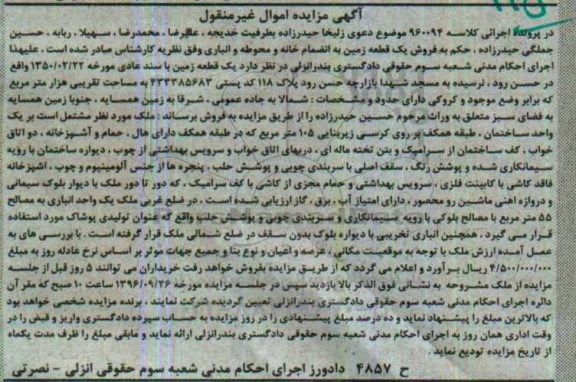 آگهی مزایده اموال غیرمنقول
در پرونده اجرائی کلاسه ۹۶۰۰۹۴ موضوع دعوی زلیخا حیدرزاده بطرفیت خدیجه ، علیرضا ، محمدرضا ، سهیلا ، ربابه ، حسین
جملگی حیدرزاده ، حکم به فروش یک قطعه زمین به انضمام خانه و محوطه و انباری وفق نظریه کارشناس صادر شده است ، علیهذا
اجرای احکام مدنی شعبه سوم حقوقی دادگستری بندرانزلی در نظر دارد یک قطعه زمین با سند عادی مورخه ۱۳۵۰/۰۲/۲۲ واقع
در حسن رود ، نرسیده به مسجد شهدا بازارچه حسن رود پلاک ۱۱۸ کد پستی ۴۳۳۳۸۵۶۸۳ به مساحت تقریبی هزار متر مربع
که برابر وضع موجود و کروکی دارای حدود و مشخصات : شمالا به جاده عمومی . شرقا به زمین همسایه ، جنوبا زمین همسایه
به فضای سبز متعلق به وراث مرحوم حسین حیدرزاده را از طریق مزایده به فروش برساند : ملک مورد نظر مشتمل است بر یک
واحد ساختمان ، طبقه همکف بر روی کرسی زیربنایی ۱۰۵ متر مربع که در طبقه همکف دارای هال ، حمام و آشپزخانه ، دو اتاق
خواب ، کف ساختمان از سرامیک و بتن تخته ماله ای ، دربهای اتاق خواب و سرویس بهداشتی از چوب ، دیواره ساختمان با رویه
سیمانکاری شده و پوشش رنگ ، سقف اصلی با سربندی چوبی و پوشش حلب ، پنجره ها از جنس آلومینیوم و چوب ، اشپزخانه
فاقد کاشی با کابینت فلزی ، سرویس بهداشتی و حمام مجزی از کاشی با کف سرامیک ، که دور تا دور ملک با دیوار بلوک سیمانی
و دروازه اهنی ماشین رو محصور ، دارای امتیاز آب ، برق ، گاز ارزیابی شده است . در ضلع غربی ملک یک واحد انباری به مصالح
۵۵ متر مربع با مصالح بلوکی با رویه سیمانکاری و سربندی چوبی و پوشش حلب واقع که عنوان تولیدی پوشاک مورد استفاده
قرار می گیرد ، همچنین انباری تخریبی با دیواره بلوک بدون سقف در ضلع شمالی ملک قرار گرفته است . با بررسی های به
عمل آمده ارزش ملک با توجه به موقعیت مکانی ، عرصه و اعیان و نوع بنا و جمیع جهات موثر بر اساس نرخ عادله روز به مبلغ
۴/۵۰۰/۰۰۰/۰۰۰ ریال برآورد و اعلام می گردد که از طریق مزایده بفروش خواهد رفت خریداران می توانند ۵ روز قبل از جلسه
مزایده از ملک مشروحه به نشانی فوق الذکر بالا بازدید سپس در جلسه مزایده مورخه ۱۳۹۶/۰۹/۲۶ ساعت ۱۰ صبح که مقر آن
دائره اجرای احکام مدنی شعبه سوم حقوقی دادگستری بندرانزلی تعیین گردیده شرکت نمایند . برنده مزایده شخصی خواهد بود
که بالاترین مبلغ را پیشنهاد نماید و ده درصد مبلغ پیشنهادی را در روز مزایده به حساب سپرده دادگستری واریز و قبض را در
وقت اداری همان روز به اجرای احکام مدنی شعبه سوم حقوقی دادگستری بندرانزلی ارائه نماید و مابقی مبلغ را ظرف مدت یکماه
از تاریخ مزایده تودیع نماید .
ح ۴۸۵۷ دادورز اجرای احکام مدنی شعبه سوم حقوقی انزلی - نصرتی